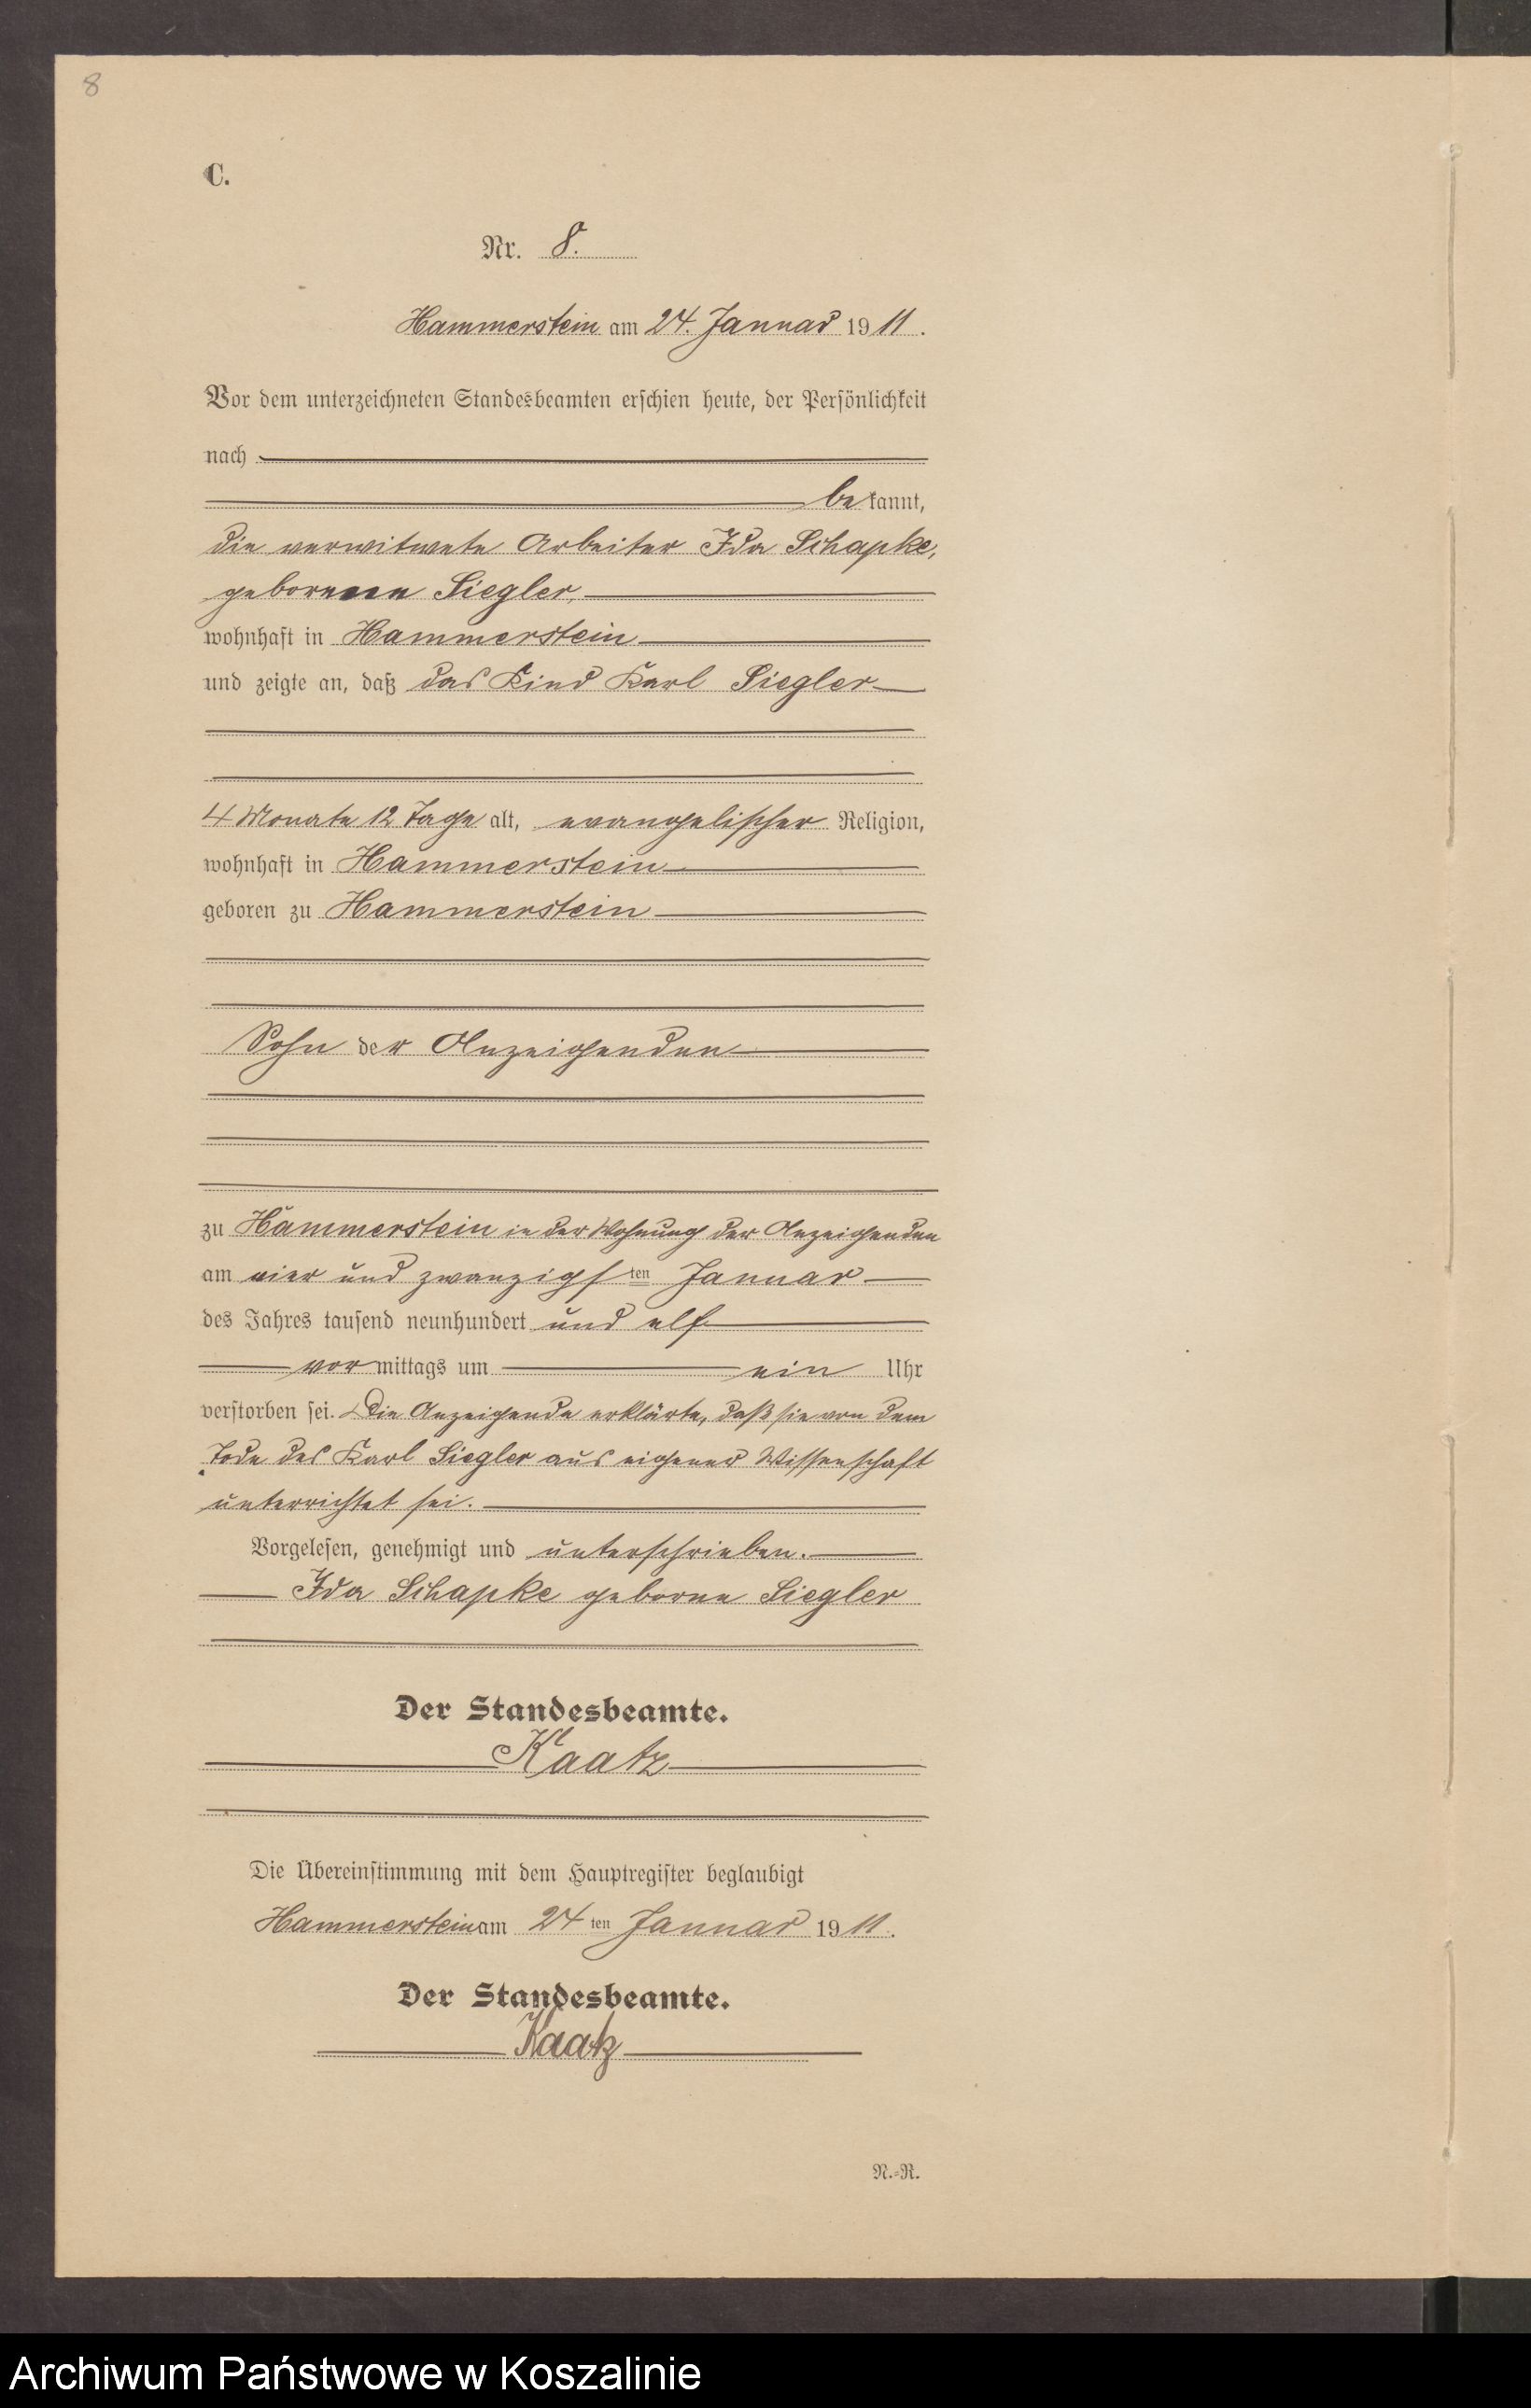 8
C.
Nr. 8.
Hammerstein am 24. Januar 1911.
Vor dem unterzeichneten Standesbeamten erschien heute, der Persönlichkeit
nach
bekannt,
die verwitwete Arbeiter Ida Schapke,
geborene Siegler,
wohnhaft in Hammerstein
und zeigte an, daß das Kind Karl Siegler
4 Monate 12 Tage alt, evangelischer Religion,
wohnhaft in Hammerstein
geboren zu Hammerstein
Sohn der Anzeigenden
zu Hammerstein in der Wohnung der Anzeigenden
am vier und zwanzigsten Januar
des Jahres tausend neunhundert und elf
vormittags um ein Uhr
verstorben sei. Die Anzeigende erklärte, daß sie von dem
Tode des Karl Siegler aus eigener Wissenschaft
unterrichtet sei.
Vorgelesen, genehmigt und unterschrieben.
Ida Schapke geborne Siegler
Der Standesbeamte.
Kaatz
Die Übereinstimmung mit dem Hauptregister beglaubigt
Hammerstein am 24ten Januar 1911.
Der Standesbeamte.
Kaatz
N.-R.
Archiwum Państwowe w Koszalinie